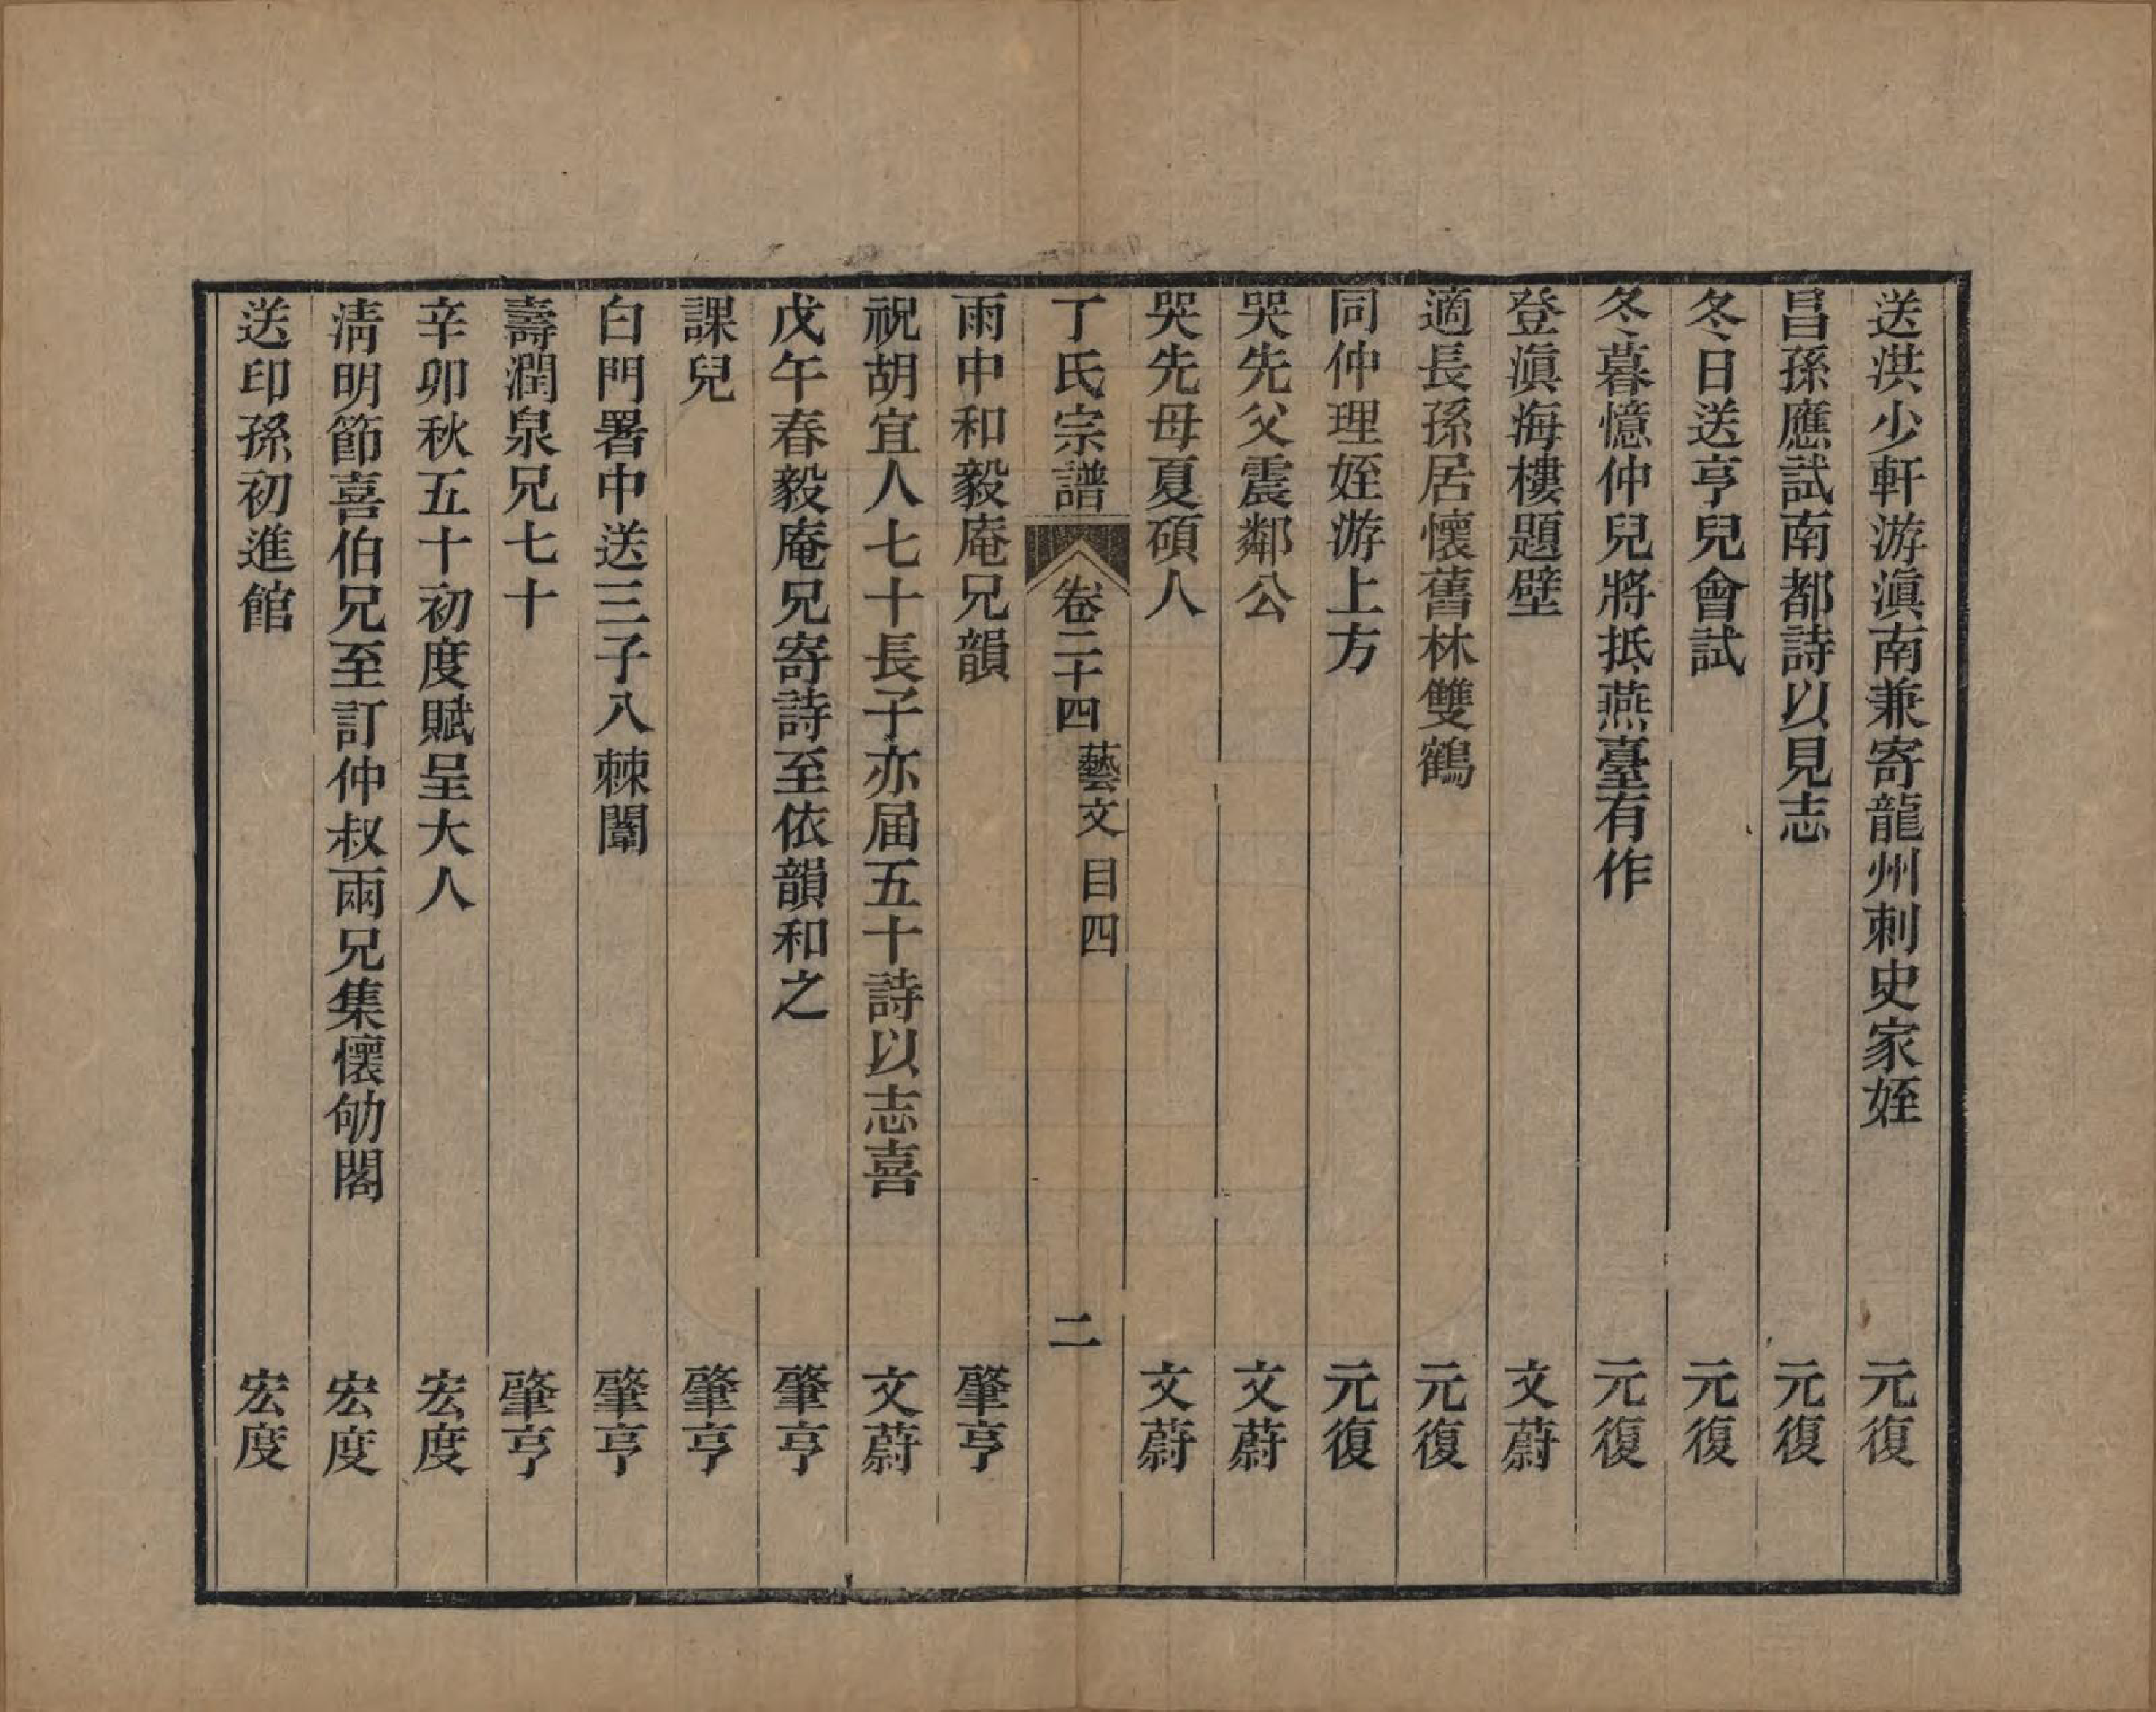 送洪少軒游滇南兼寄龍州刺史家姪　元復
昌孫應試南都詩以見志　元復
冬日送亨兒會試　元復
冬暮憶仲兒將抵燕臺有作　元復
登滇海樓題壁　文蔚
適長孫居懷舊林雙鶴　元復
同仲理姪游上方　元復
哭先父震鄰公　文蔚
哭先母夏碩人　文蔚
丁氏宗譜　卷二十四　藝文　目四　二
雨中和毅庵兄韻　肇亨
祝胡宜人七十長子亦届五十詩以志喜　文蔚
戊午春毅庵兄寄詩至依韻和之　肇亨
課兒　肇亨
白門署中送三子入棘闈　肇亨
壽潤泉兄七十　肇亨
辛卯秋五十初度賦呈大人　宏度
清明節喜伯兄至訂仲叔兩兄集懷劬閣　宏度
送印孫初進館　宏度